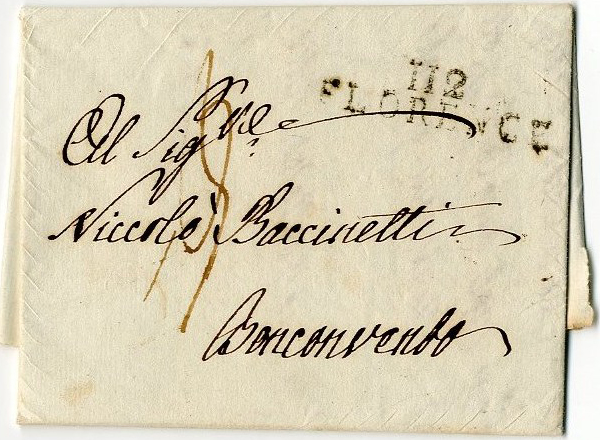 112
FLORENCE
Al Sig.re
Niccolò Baccinetti
Bonconvento